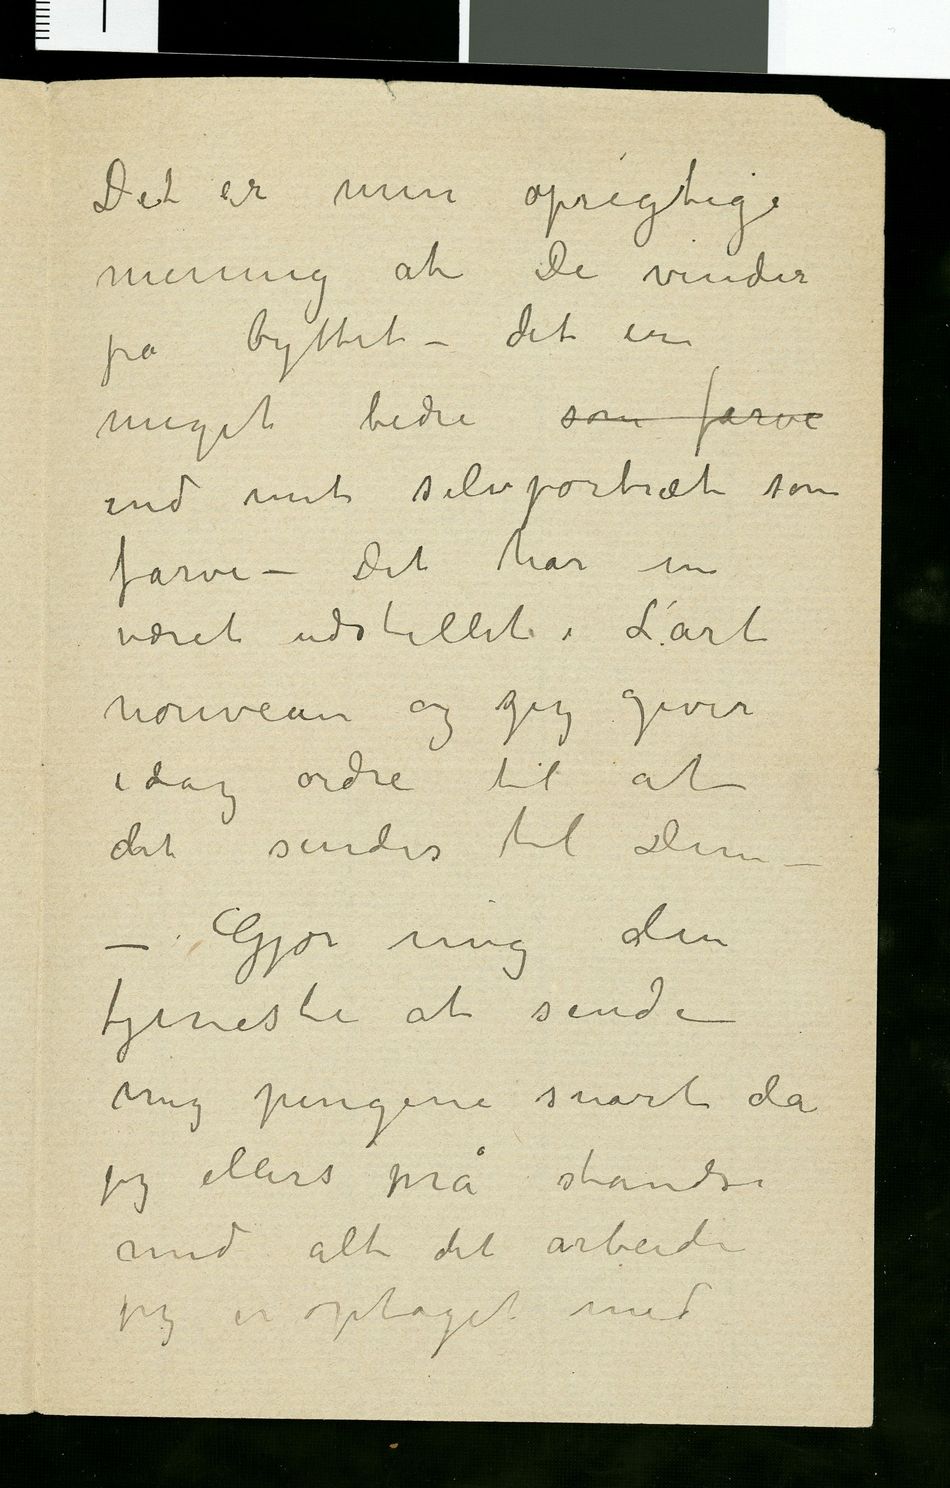 Det er min oprigtige
mening at De vinder
på byttet – det er
meget bedre som farve
end mit selvportræt som
farve – Det har
været udstillet i L'art
nouveau og jeg giver
idag ordre til at
det sendes til Dem –
– Gjør mig den
tjeneste at sende
mig pengene snart da
jeg ellers må standse
med alt det arbeide
jeg er optaget med